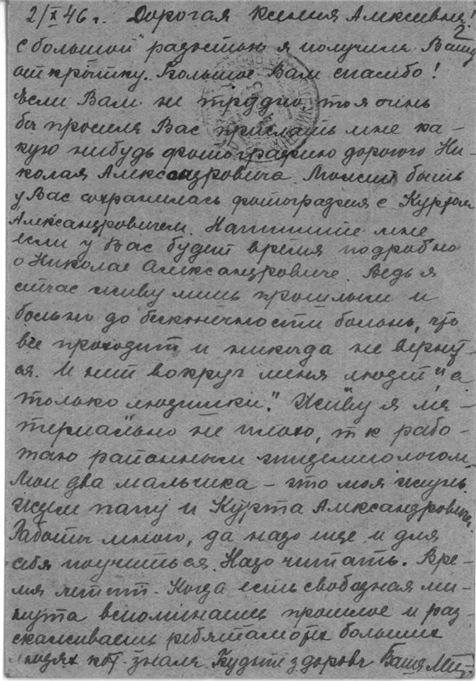 2/X 46 г. Дорогая Ксения Алексеевна,
с большой радостью я получила Вашу
открытку. Большое Вам спасибо!
Если Вам не трудно, то я очень
бы просила Вас прислать мне ка-
кую нибудь фотографию дорогого Ни-
колая Александровича. Может быть
у Вас сохранилась фотография с Куртом
Александровичем. Напишите мне
если у Вас будет время подробно
о Николае Александровиче. Ведь я
сейчас живу лишь прошлым и
больно до бесконечности больно, что
все проходит и никогда не вернут-
ся. И нит вокруг меня людей, "а
только людишки." Живу я ма-
териально не плохо, т к рабо-
таю районным эпидемиологом.
Мои два мальчика - это моя жизнь
ждем папу и Курта Александровича.
Работы много, да надо еще и для
себя поучиться. Надо читать. Вре-
мя летит. Когда есть свободная ми-
нута вспоминаешь прошлое и рас
сказываешь ребятам о тех больших
людях кот. знала Будьте здоровы Ваша